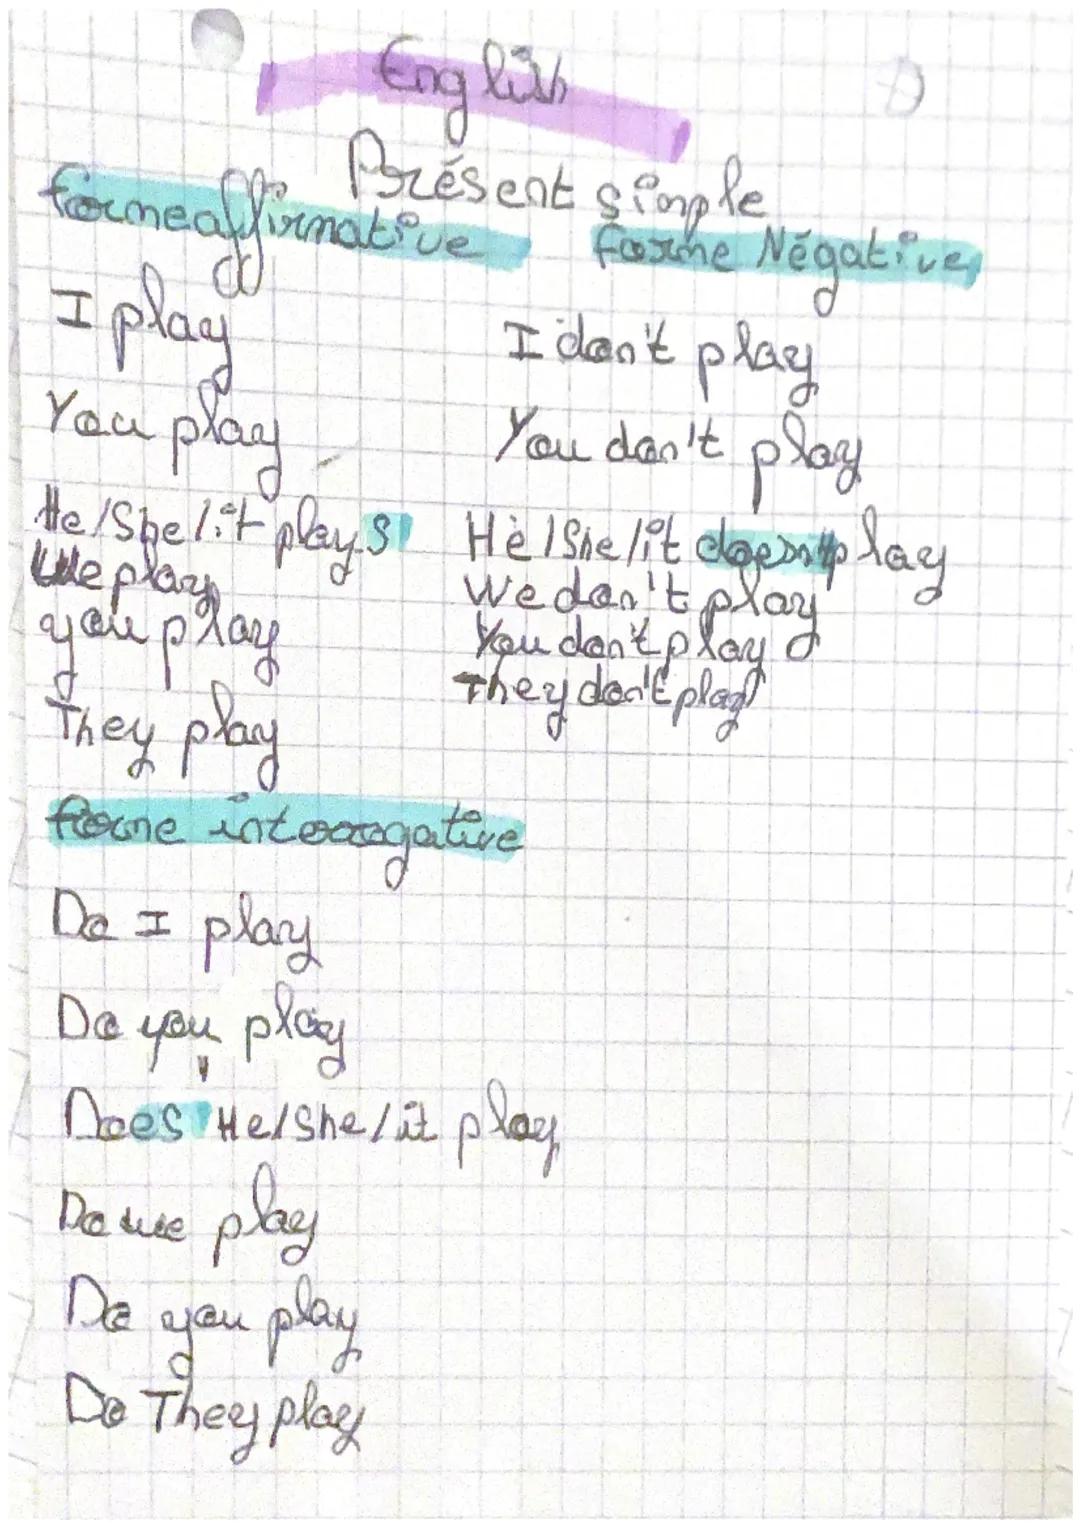 English
Présent simple
forme affirmative
I play
You play
He/She/it plays
We play
you play
They play
forme Négative
I don't play
You don't play
He/She/it doesn't play
We don't play
You don't play
They don't play
forme interrogative
Do I play
Do you play
Does He/She/it play
Do we play
Do you play
Do They play